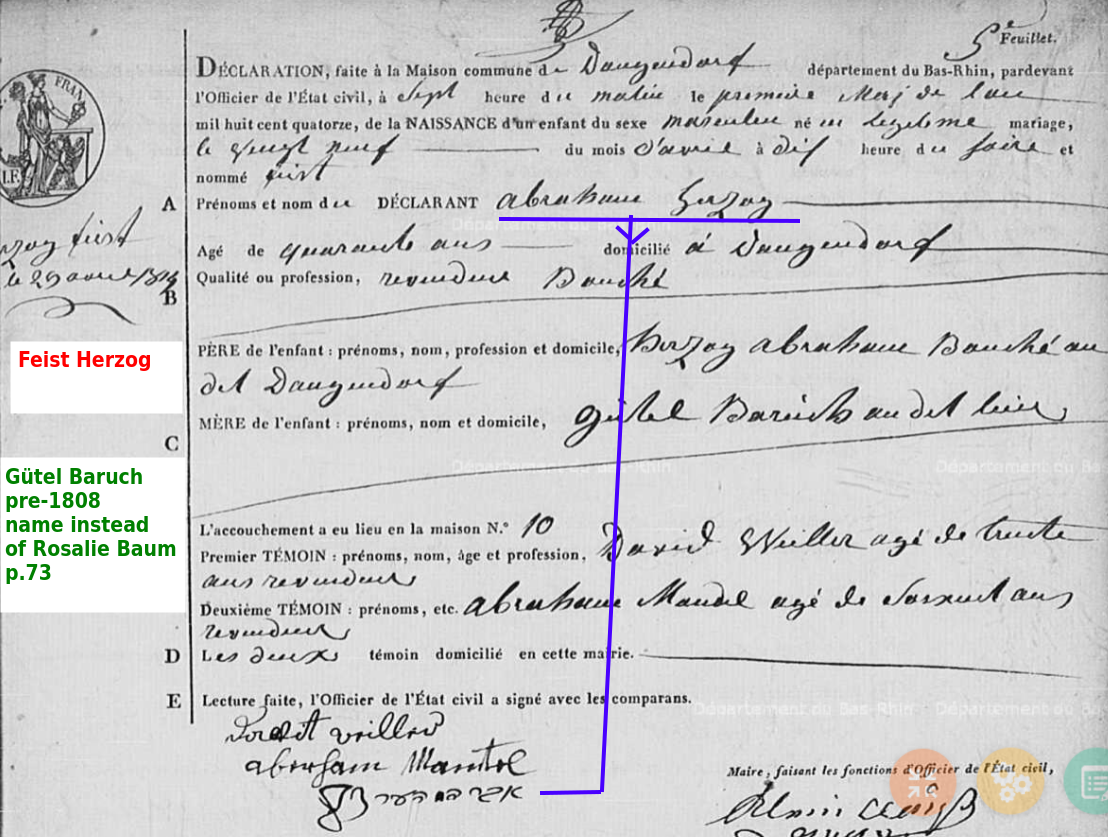 5e Feuillet.
DÉCLARATION, faite à la Maison commune de Daugendorf département du Bas-Rhin, pardevant
l'Officier de l'État civil, à Sept heure du matin le premier May de l'an
mil huit cent quatorze, de la NAISSANCE d'un enfant du sexe masculin né en legitime mariage,
le vingt neuf du mois d'avril à dix heure du soire et
nommé feist
A Prénoms et nom du DÉCLARANT abraham Herzog
Agé de quarante ans domicilié à Daugendorf
Qualité ou profession, revendeur
B
le 29 avril 1814
Feist Herzog
PÈRE de l'enfant : prénoms, nom, profession et domicile, Herzog abraham au
dit Daugendorf
MÈRE de l'enfant : prénoms, nom et domicile, Gütel Baruch au dit lieu
C
Gütel Baruch
pre-1808
name instead
of Rosalie Baum
p.73
L'accouchement a eu lieu en la maison N.° 10
Premier TÉMOIN : prénoms, nom, âge et profession, David Weiller agé de trente
ans revendeur
Deuxième TÉMOIN : prénoms, etc. abraham Mandel agé de ans
revendeur
D Les deux témoin domicilié en cette mairie.
E Lecture faite, l'Officier de l'État civil a signé avec les comparans.
abraham Mantel
Maire, faisant les fonctions d'Officier de l'État civil,
Département du Bas-Rhin